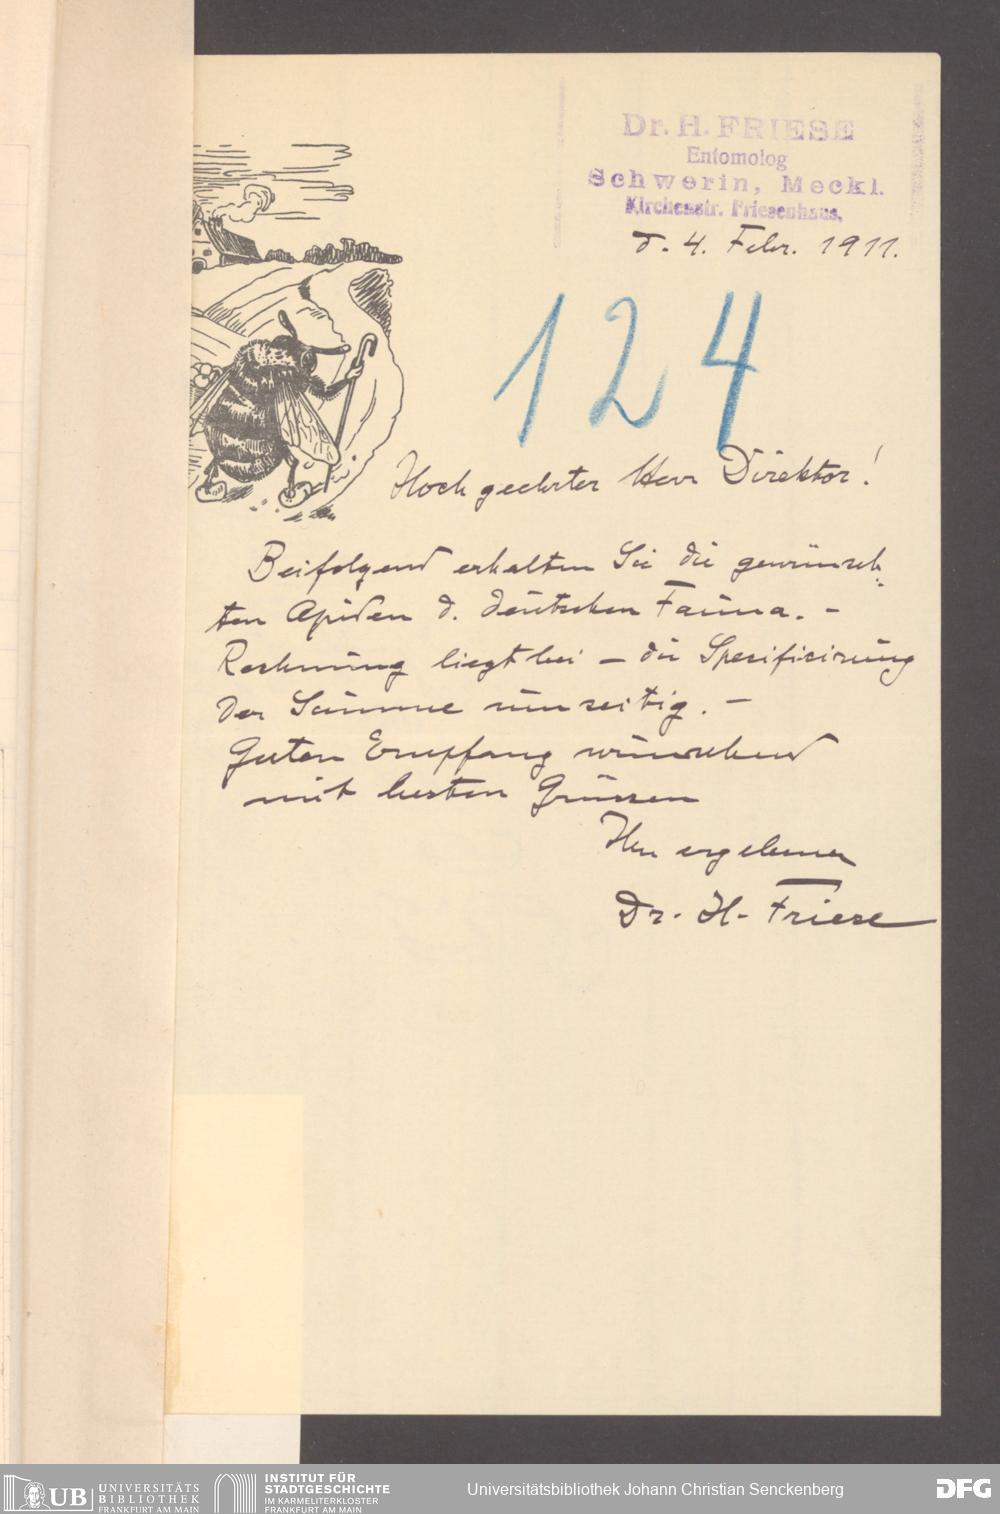 Dr. H. FRIESE
Entomolog
Schwerin, Meckl.
Kirchenstr. Friesenhaus.
d. 4. Febr. 1911.
124
Hochgeehrter Herr Direktor!
Beifolgend erhalten Sie die gewünsch-
ten Apiden d. deutschen Fauna. –
Rechnung liegt bei – die Spezificirung
der Summe umseitig. –
Guten Empfang wünschend
mit besten Grüssen
Ihr ergebener
Dr. H. Friese
UB UNIVERSITÄTS
BIBLIOTHEK
FRANKFURT AM MAIN
INSTITUT FÜR
STADTGESCHICHTE
IM KARMELITERKLOSTER
FRANKFURT AM MAIN
Universitätsbibliothek Johann Christian Senckenberg
DFG